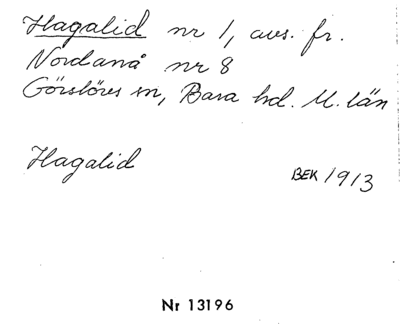 Hagalid nr 1, avs. fr.
Nordanå nr 8
Görslövs sn, Bara hd. M. län
Hagalid
BEK 1913
Nr 13196